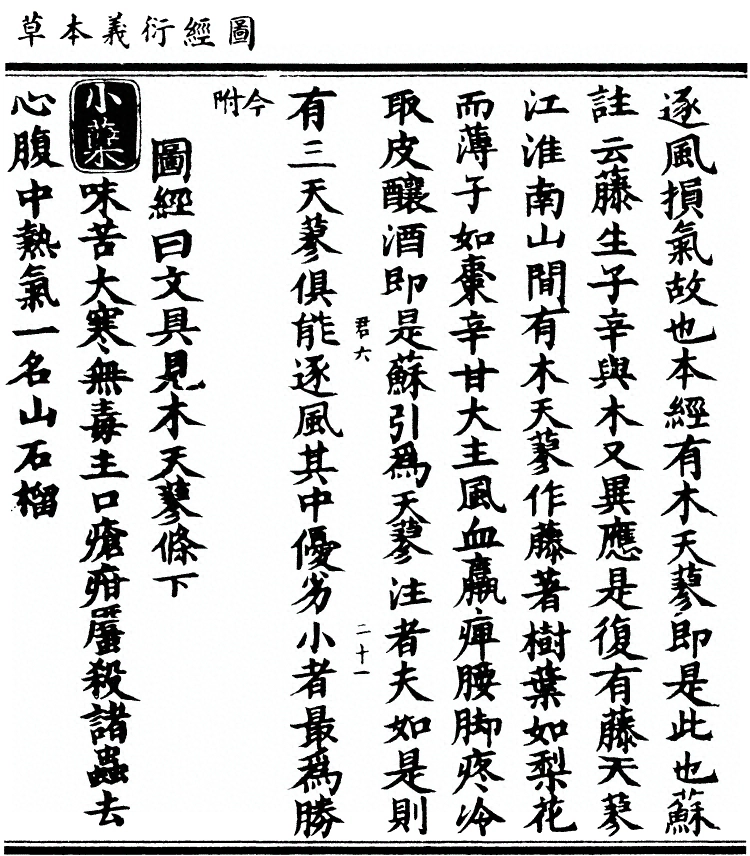 圖經衍義本草
逐風損氣故也本經有木天蓼即是此也蘇
註云藤生子辛與木又異應是復有藤天蓼
江淮南山間有木天蓼作藤著樹葉如梨花
而薄子如棗辛甘大主風血羸痺腰脚疼冷
取皮釀酒即是蘇引爲天蓼注者夫如是則
君六
二十一
有三天蓼俱能逐風其中優劣小者最爲勝
今附
圖經曰文具見木天蓼條下
小蘗味苦大寒無毒主口瘡疳䘌殺諸蟲去
心腹中熱氣一名山石榴